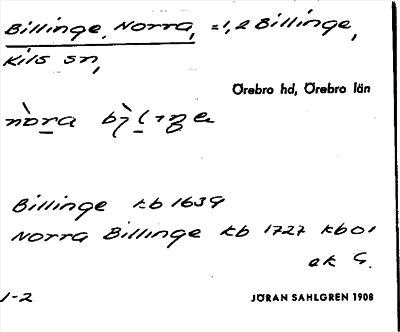 Billinge, Norra, = 1, 2 Billinge,
Kils sn,
Örebro hd, Örebro län
Billinge kb 1639
Norra Billinge kb 1727 kbol
ek G.
1-2
JÖRAN SAHLGREN 1908